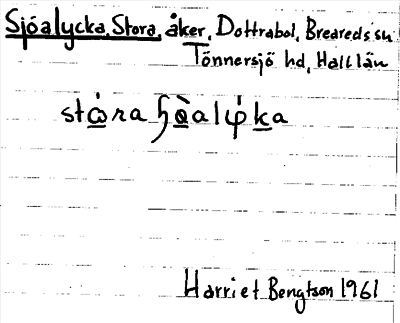 Sjöalycka, Stora, åker, Dottrabol, Breareds sn
Tönnersjö hd, Halllän
Harriet Bengtson 1961